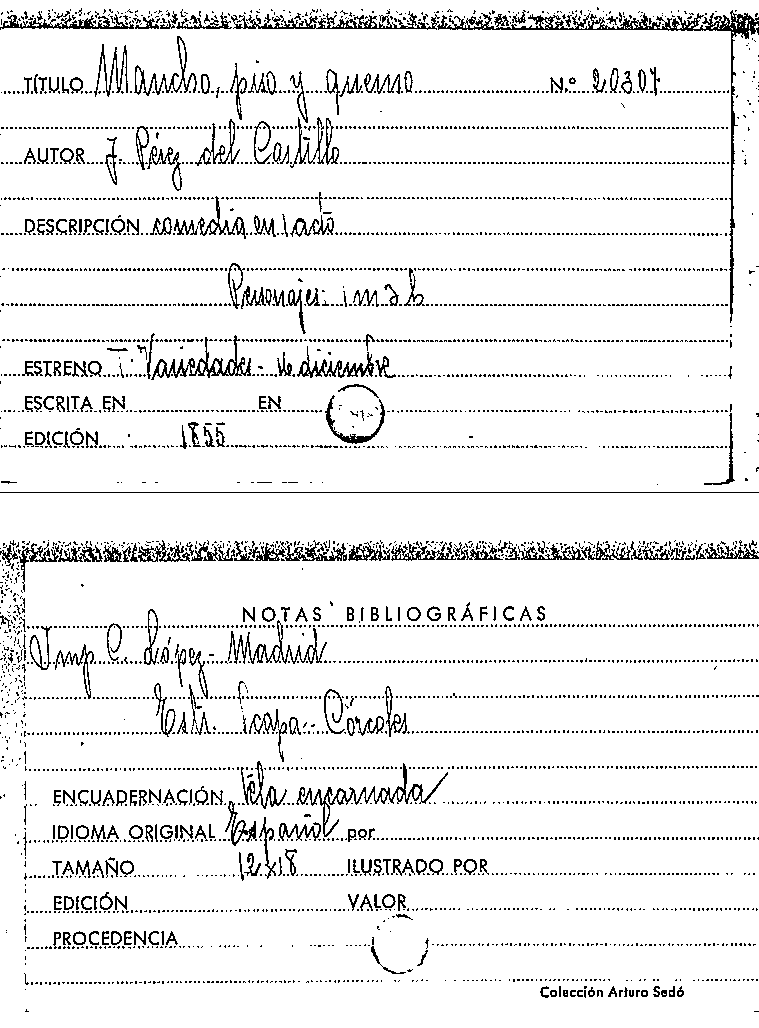 TÍTULO Mancho, piso y quemo N.º 20307
AUTOR J. Pérez del Castillo
DESCRIPCIÓN comedia en 1 acto
Personajes: 1 m 2 h
ESTRENO T. Variedades - 16 diciembre
ESCRITA EN EN
EDICIÓN 1855
NOTAS BIBLIOGRÁFICAS
Imp C. López - Madrid
Estr.
ENCUADERNACIÓN Tela encarnada
IDIOMA ORIGINAL Español por
TAMAÑO 12x18 ILUSTRADO POR
EDICIÓN VALOR
PROCEDENCIA
Colección Arturo Sedó